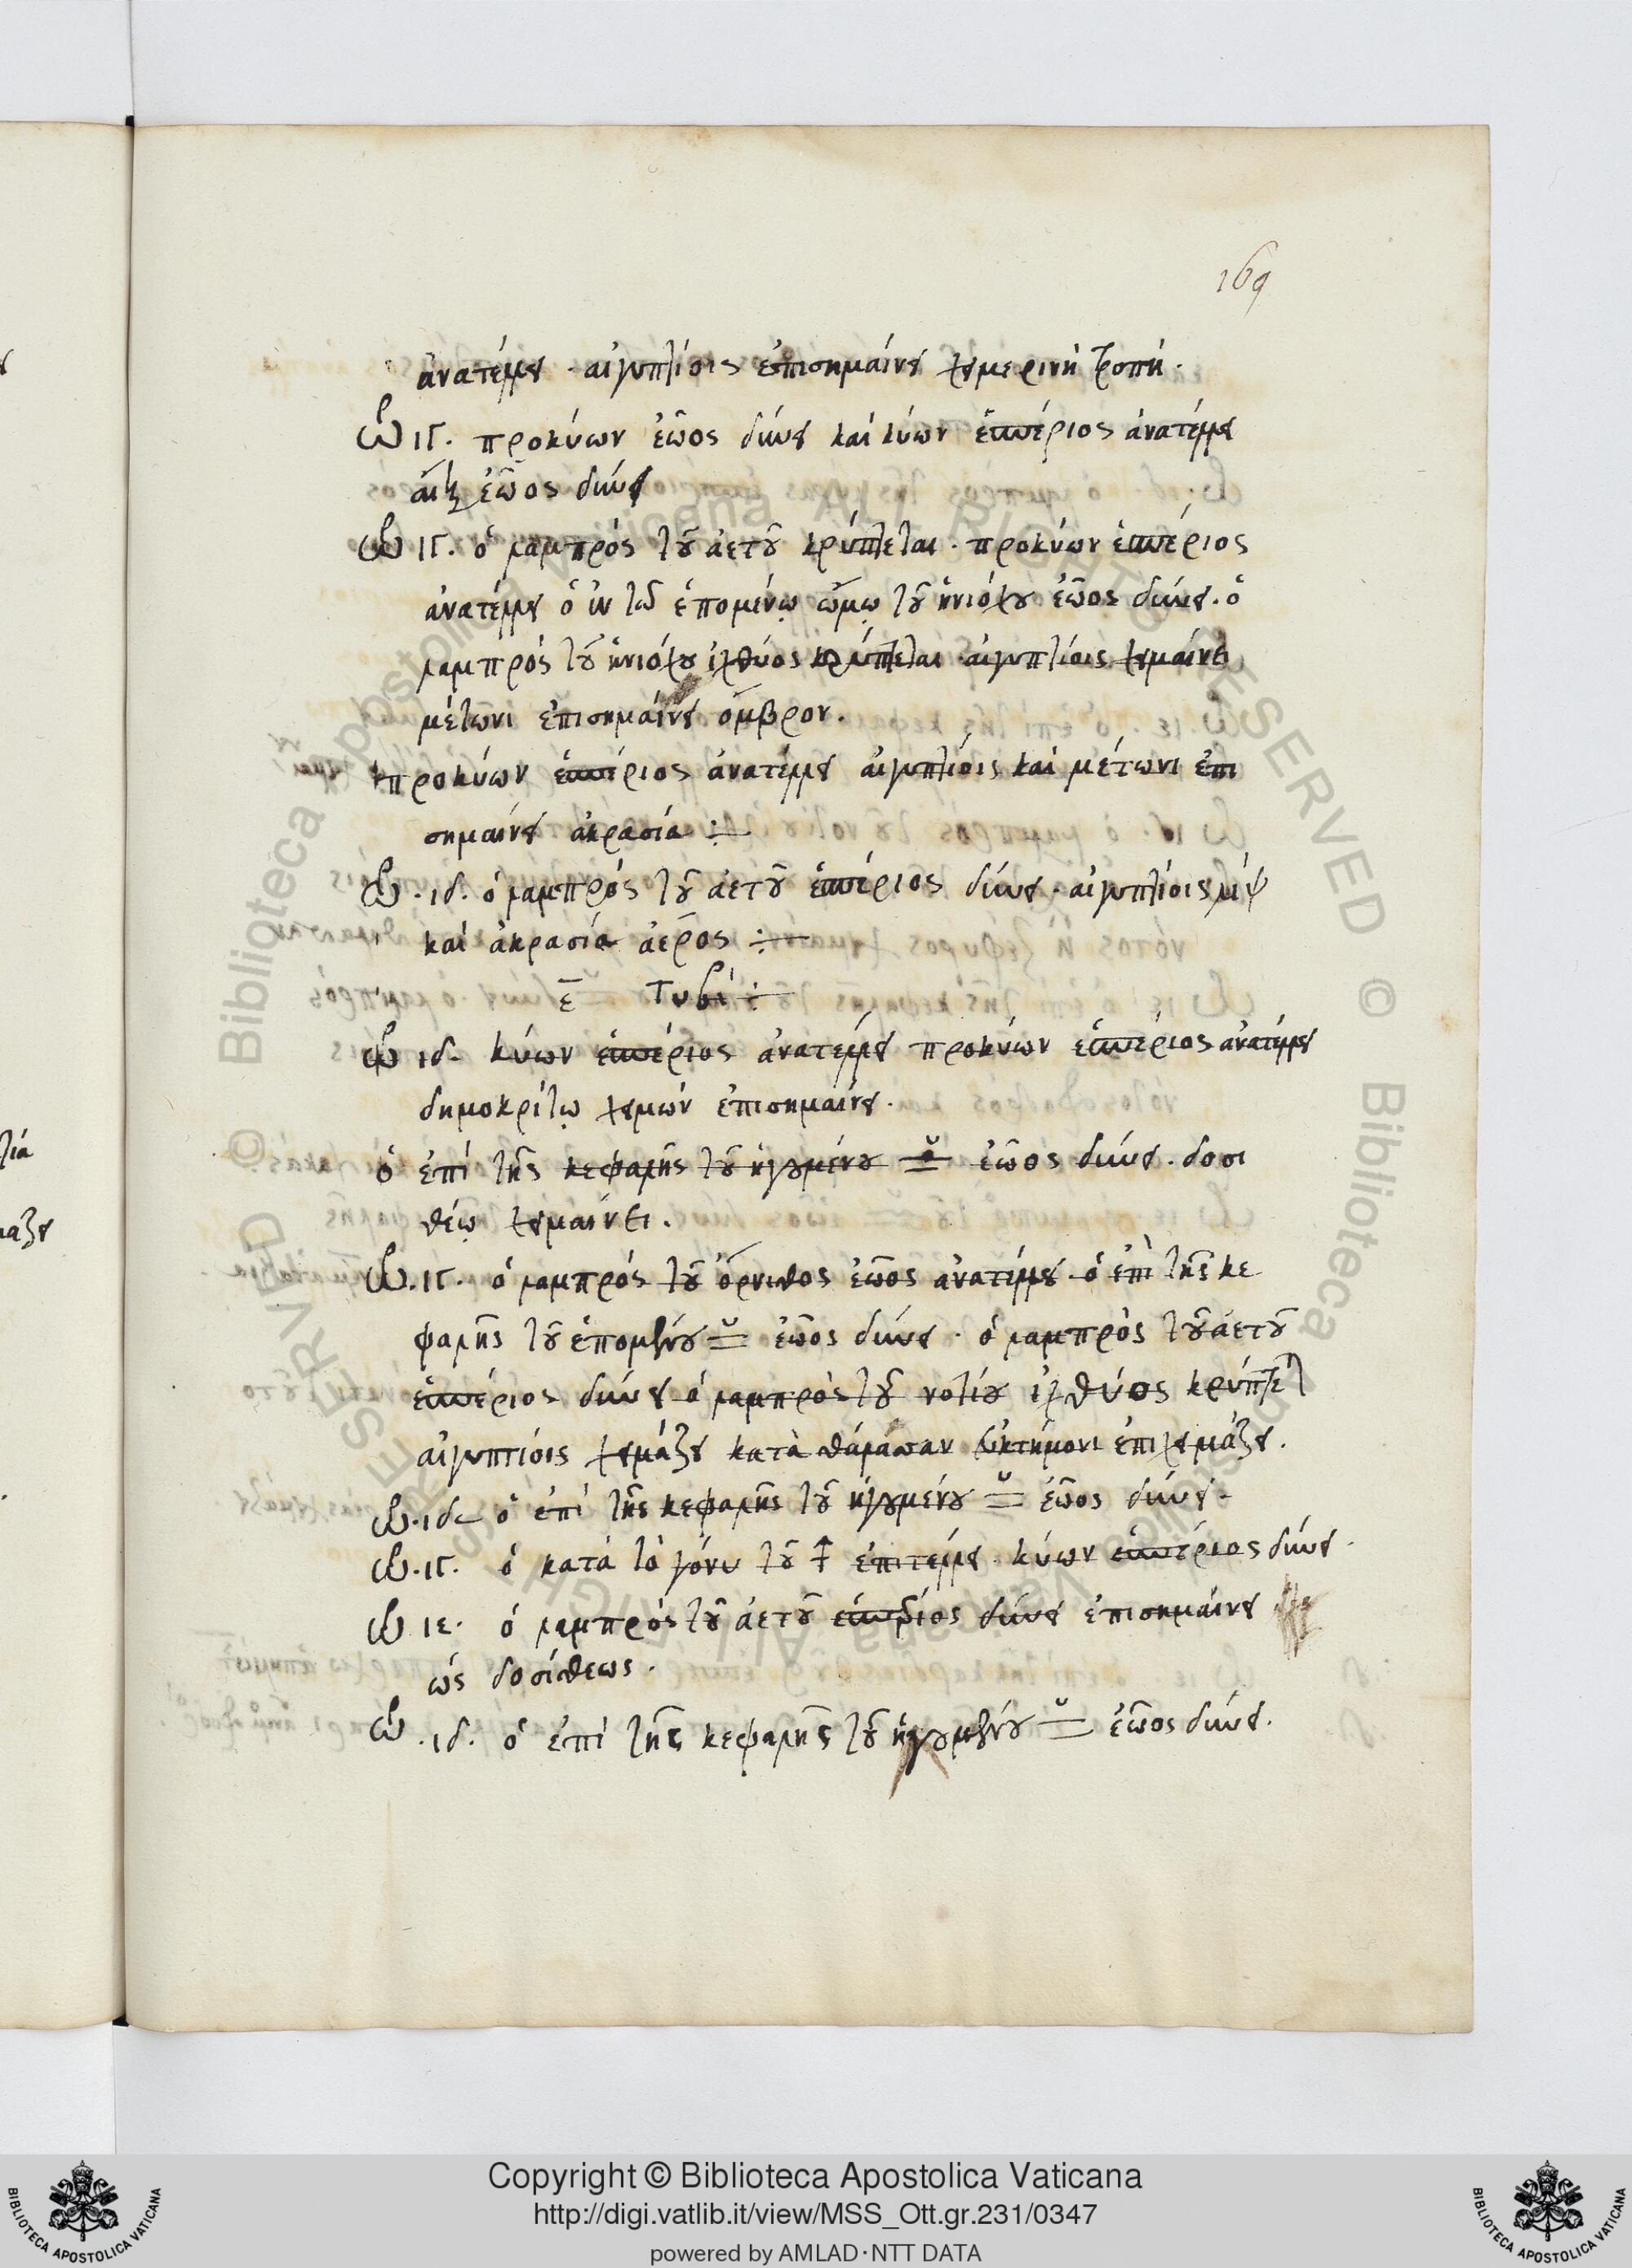 169
ἀνατέλλει · αἰγυπτίοις ἐπισημαίνει χειμερινὴ τροπή ·
ὡρ ιγ · προκύων ἑῶος δύνει καὶ κύων ἑσπέριος ἀνατέλλει
ἑῶος δύνει
ὡρ ιγ · ὁ λαμπρὸς τοῦ ἀετοῦ κρύπτεται · προκύων ἑσπέριος
ἀνατέλλει ὁ ἐν τῶ ἑπομένῳ ὤμῳ τοῦ ἡνιόχου ἑῶος δύνει · ὁ
λαμπρὸς τοῦ ἡνιόχου ἰχθύος κρύπτεται · αἰγυπτίοις χειμαίνει
μέτωνι ἐπισημαίνει ὄμβρον ·
προκύων ἑσπέριος ἀνατέλλει αἰγυπτίοις καὶ μέτωνι ἐπι
σημαίνει ἀκρασία ÷
ὡρ · ιδ · ὁ λαμπρὸς τοῦ ἀετοῦ ἑσπέριος δύνει · αἰγυπτίοις
καὶ ἀκρασία ἀέρος ÷
ε Τυβί ÷
ὡρ ιδ κύων ἑσπέριος ἀνατέλλει προκύων ἑσπέριος ἀνατέλλει
δημοκρίτῳ χειμὼν ἐπισημαίνει ·
ὁ ἐπὶ τῆς κεφαλῆς τοῦ ἡγουμένου ἑῶος δύνει · δοσι
θέῳ χειμαίνει ·
ὡρ · ιγ · ὁ λαμπρὸς τοῦ ὄρνιθος ἑῶος ἀνατέλλει ὁ ἐπὶ τῆς κε
φαλῆς τοῦ ἑπομένου ἑῶος δύνει · ὁ λαμπρὸς τοῦ ἀετοῦ
ἑσπέριος δύνει ὁ λαμπρὸς τοῦ νοτίου ἰχθύος κρύπτετ
αἰγυπτίοις χειμάζει κατὰ θάλασσαν εὐκτήμονι ἐπιχειμάζει ·
ὡρ · ιδ ὁ ἐπὶ τῆς κεφαλῆς τοῦ ἡγουμένου ἑῶος δύνει ·
ὡρ · ιγ · ὁ κατὰ τὸ γόνυ τοῦ ♐ ἐπιτέλλει · κύων ἑσπέριος δύνει ·
ὡρ ιε · ὁ λαμπρὸς τοῦ ἀετοῦ ἑσπέριος δύνει ἐπισημαίνει
ὡς δοσίθεως ·
ὡρ · ιδ · ὁ ἐπὶ τῆς κεφαλῆς τοῦ ἡγουμένου ἑῶος δύνει ·
© Biblioteca Apostolica Vaticana ALL RIGHTS RESERVED
Copyright © Biblioteca Apostolica Vaticana
http://digi.vatlib.it/view/MSS_Ott.gr.231/0347
powered by AMLAD·NTT DATA
BIBLIOTECA APOSTOLICA VATICANA
BIBLIOTECA APOSTOLICA VATICANA